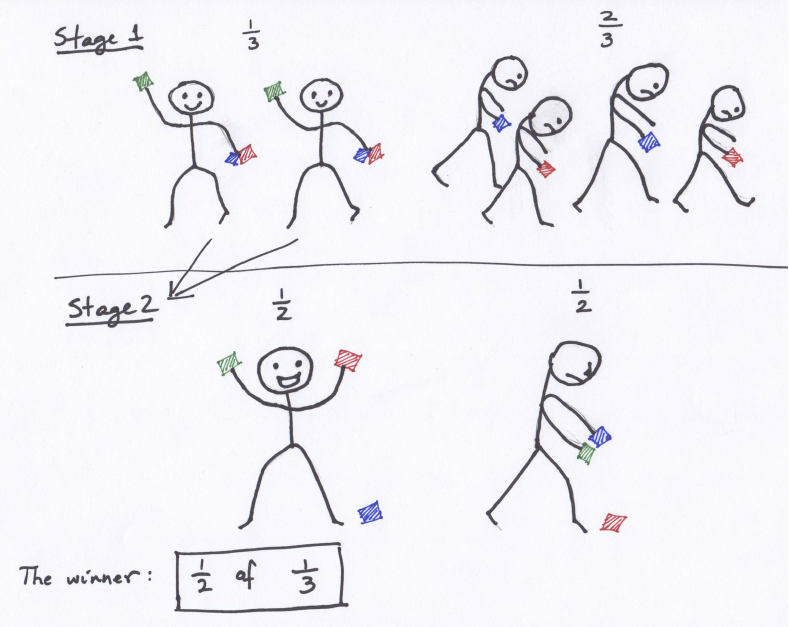 Stage 1
1/3
2/3
Stage 2
1/2
1/2
The winner: 1/2 of 1/3